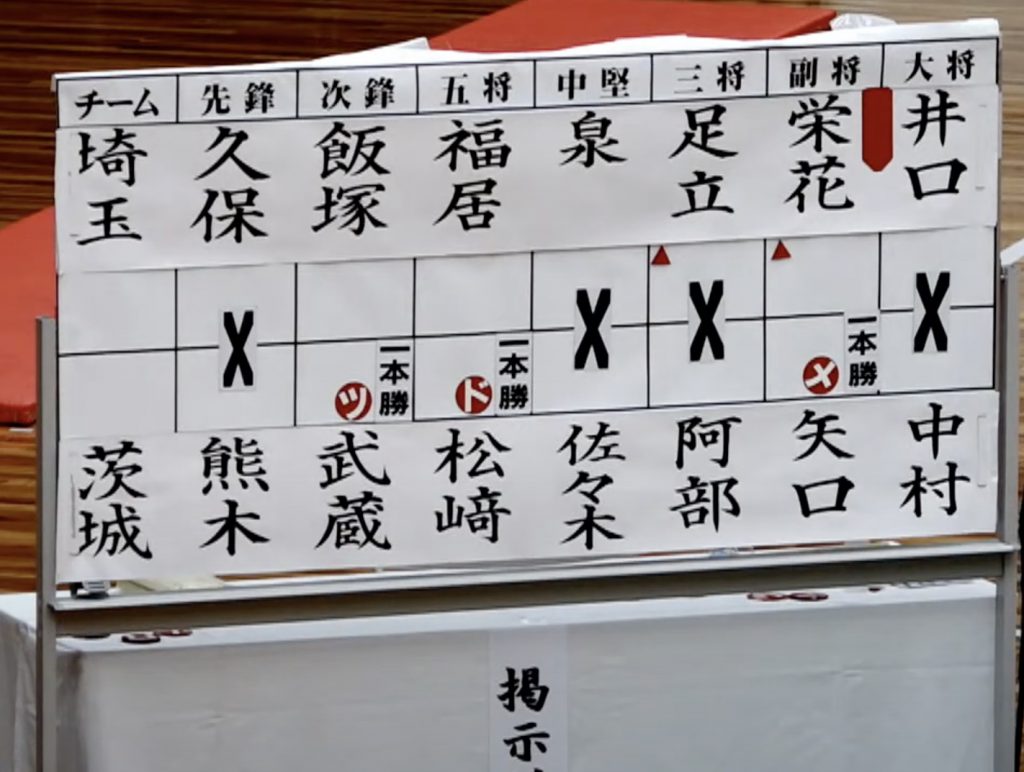 チーム 先鋒 次鋒 五将 中堅 三将 副将 大将
埼玉 久保 飯塚 福居 泉 足立 栄花 井口
X X X X
ツ 一本勝 ド 一本勝 メ 一本勝
茨城 熊木 武蔵 松﨑 佐々木 阿部 矢口 中村
掲示